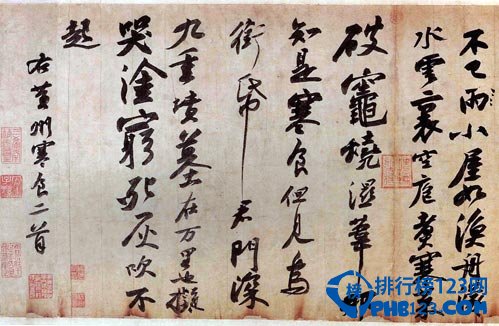 不已雨小屋如漁舟濛
水雲裏空庖煮寒菜
破竈燒濕葦那
知是寒食但見烏
銜帋君門深
九重墳墓在万里也擬
哭塗窮死灰吹不
起
右黃州寒食二首
榜
排行榜123网
PHB123.COM